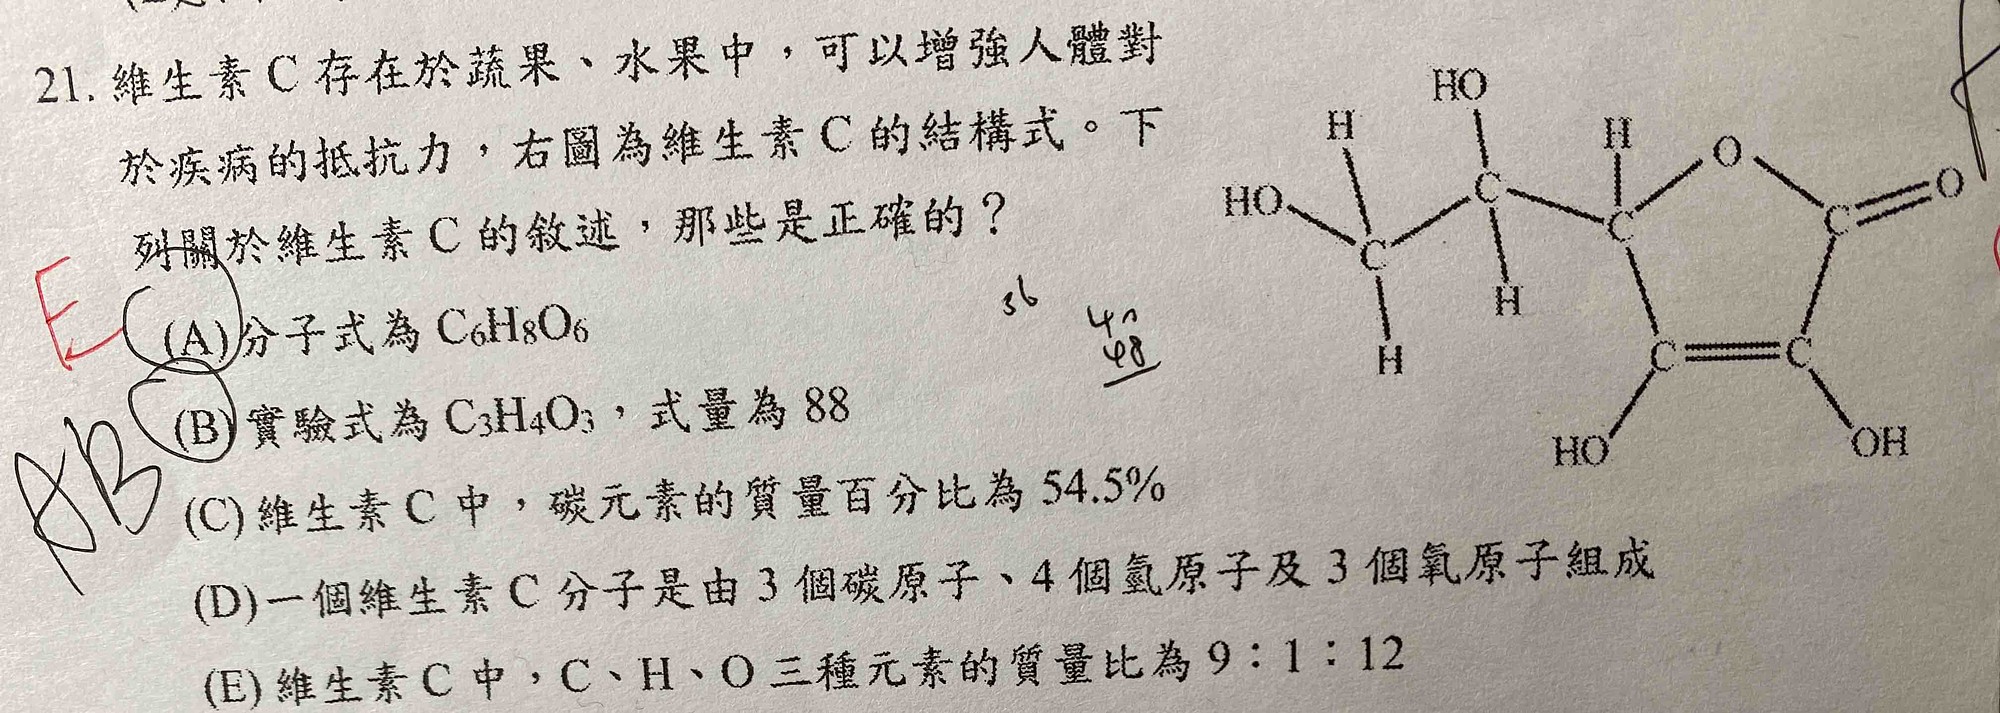 21. 維生素 C 存在於蔬果、水果中，可以增強人體對
於疾病的抵抗力，右圖為維生素 C 的結構式。下
列關於維生素 C 的敘述，那些是正確的？
E
(A) 分子式為 C₆H₈O₆
AB
(B) 實驗式為 C₃H₄O₃，式量為 88
(C) 維生素 C 中，碳元素的質量百分比為 54.5%
(D) 一個維生素 C 分子是由 3 個碳原子、4 個氫原子及 3 個氧原子組成
(E) 維生素 C 中，C、H、O 三種元素的質量比為 9：1：12
36
48
HO
H H
O
HO C C O
C C
H
H
C C
HO OH